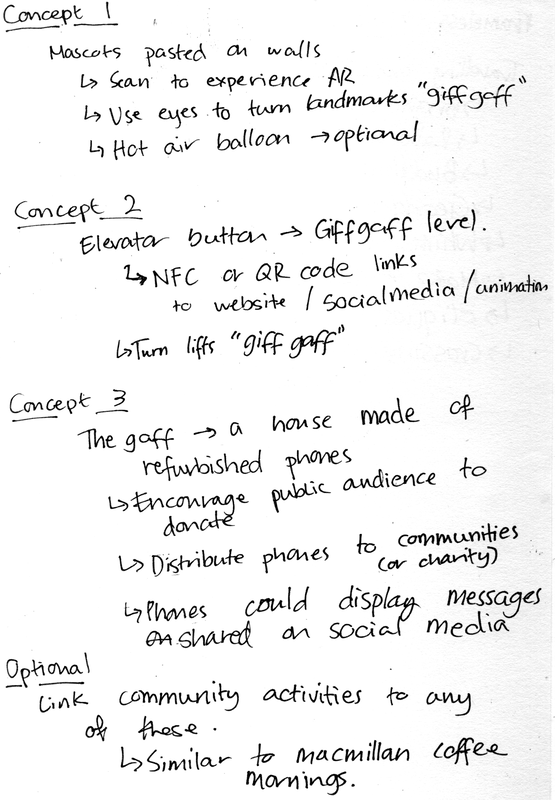 Concept 1
Mascots pasted on walls
↳ Scan to experience AR
↳ Use eyes to turn landmarks "giffgaff"
↳ Hot air balloon → optional
Concept 2
Elevator button → Giffgaff level.
↳ NFC or QR code links
to website / social media / animation
↳ Turn lifts "giff gaff"
Concept 3
The gaff → a house made of
refurbished phones
↳ Encourage public audience to
donate
↳ Distribute phones to communities
(or charity)
↳ Phones could display messages
shared on social media
Optional
Link community activities to any
of these.
↳ Similar to macmillan coffee
mornings.